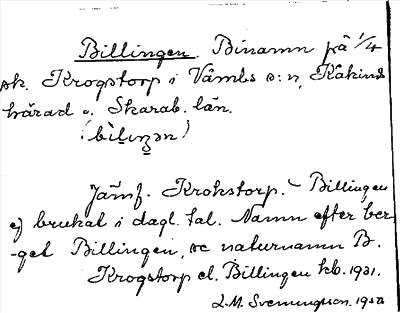 Billingen. Binamn på 1/4
sk. Krogstorp i Våmbs s:n, Kåkinds
härad o. Skarab. län.
(bìlıŋən)
Jämf. Krokstorp. - Billingen
ej brukat i dagl. tal. Namn efter ber-
-get Billingen, se naturnamn B.
Krogstorp el. Billingen kb. 1931.
L.M. Svenungson. 1950